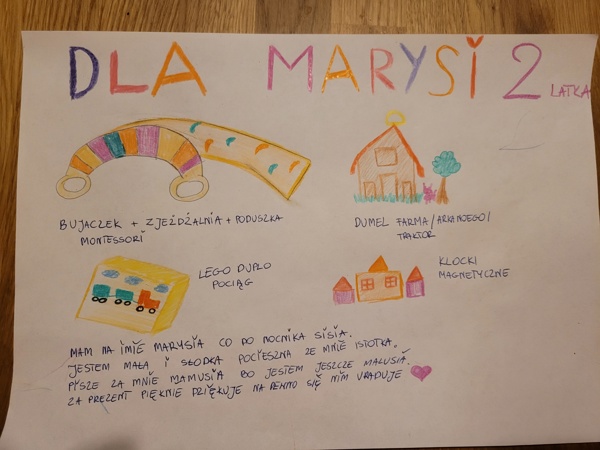 DLA MARYSI 2 LATKA
BUJACZEK + ZJEŻDŻALNIA + PODUSZKA
MONTESSORI
DUMEL FARMA/ARKA NOEGO/
TRAKTOR
LEGO DUPLO
POCIĄG
KLOCKI
MAGNETYCZNE
MAM NA IMIĘ MARYSIA CO DO NOCNIKA SISIA.
JESTEM MAŁA I SŁODKA POCIESZNA ZE MNIE ISTOTKA.
PISZE ZA MNIE MAMUSIA BO JESTEM JESZCZE MALUSIA.
ZA PREZENT PIĘKNIE DZIĘKUJE NA PEWNO SIĘ NIM URADUJE